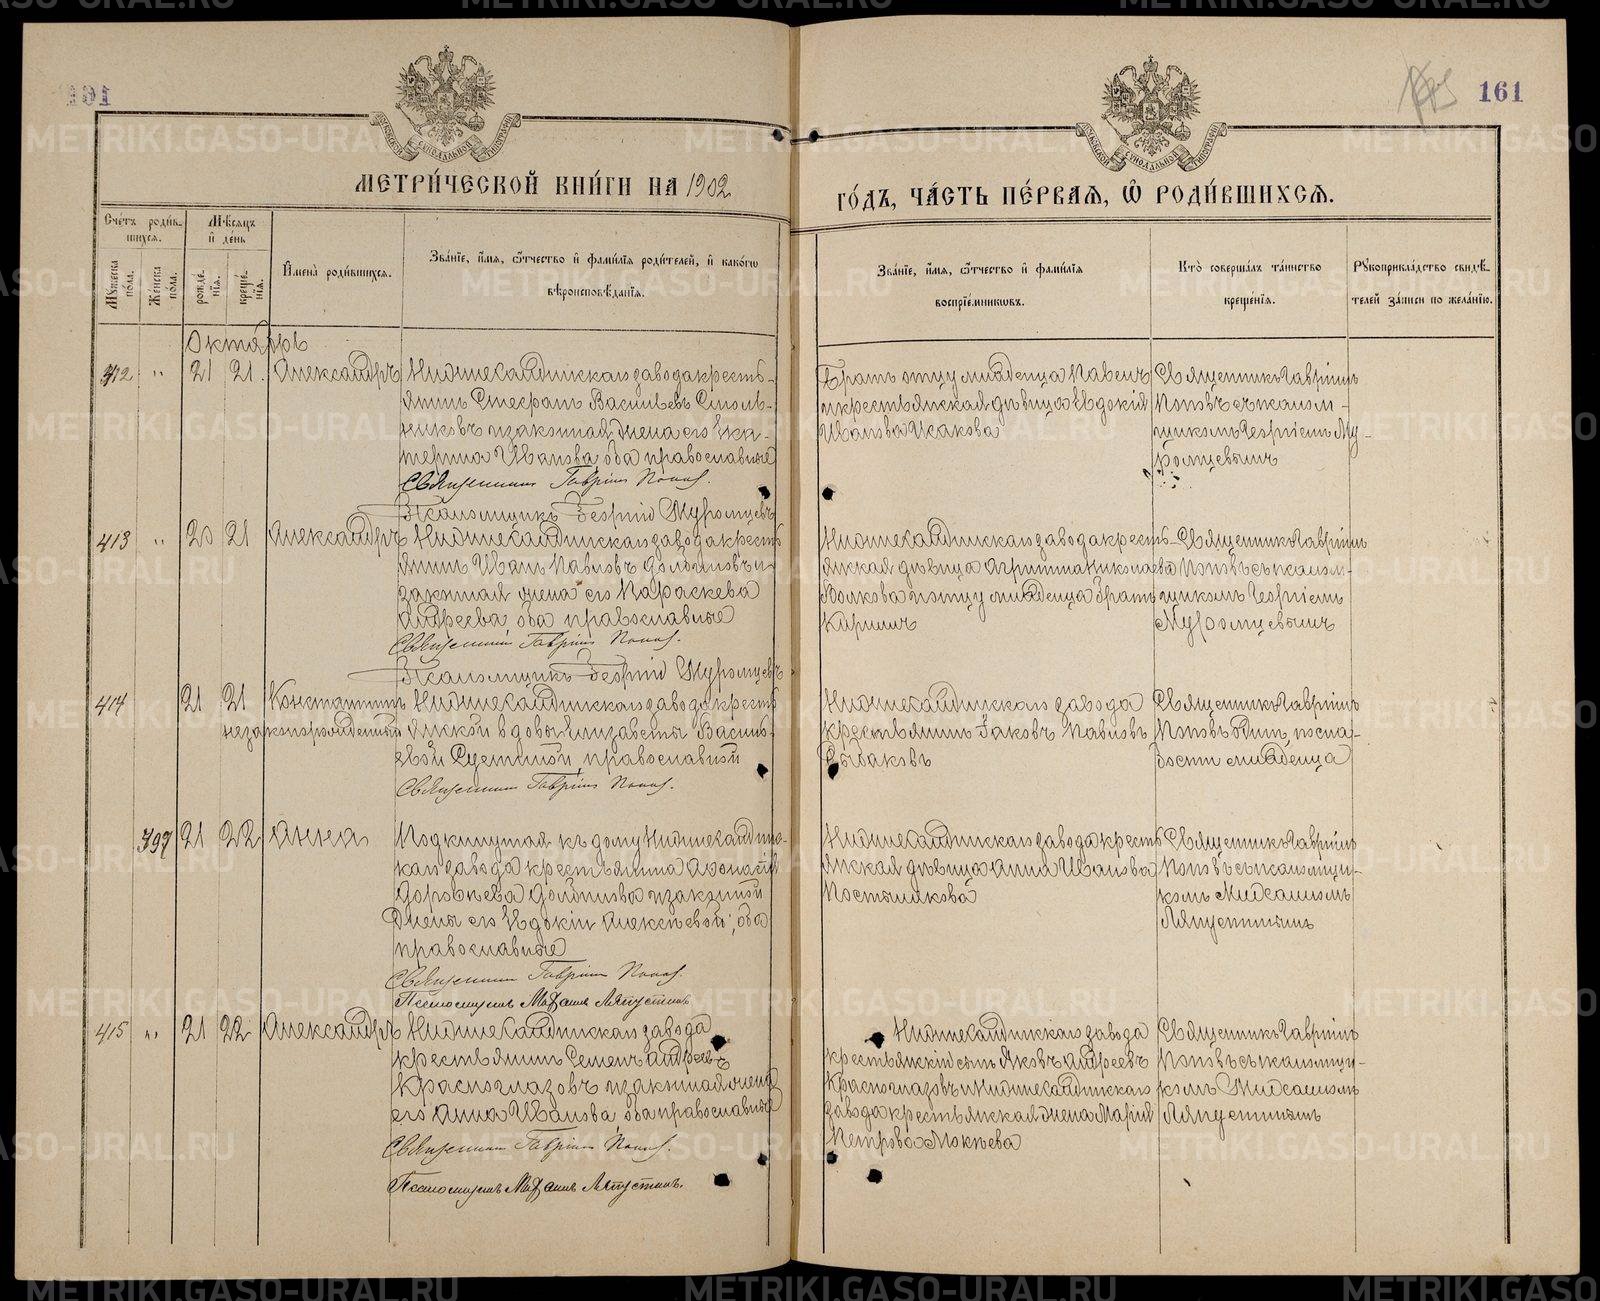 161
МЕТРИ́ЧЕСКОЙ КНИ́ГИ НА 1902
ГО́ДЪ, ЧА́СТЬ ПЕ́РВАЯ, Ѡ РОДИ́ВШИХСЯ.
Сче́тъ роди́в-
шихся.
Мѣ́сяцъ
и҆ де́нь
Му́жеска
пола.
Же́нска
пола.
рожде́-
нїя.
креще́-
нїя.
И҆мена̀ роди́вшихся.
Зва́нїе, и҆́мя, ѻ҆́тчество и҆ фами́лїя роди́телей, и҆ како́гѡ
вѣроисповѣ́данїя.
Зва́нїе, и҆́мя, ѻ҆́тчество и҆ фами́лїя
воспрїе́мникѡвъ.
Кто̀ соверша́лъ та́инство
креще́нїя.
Рꙋкоприкла́дство свидѣ́-
телей за́писи по жела́нїю.
Октябрь
412 " 21 21. Александръ
Нижнесалдинскаго завода кресть-
янинъ Васильевъ
законная жена его Ека-
терина Иванова оба православные
Священникъ Гавріилъ Поповъ.
Псаломщикъ Георгій Муромцевъ
Братъ отцу младенца Павелъ
и крестьянская дѣвица Евдокія
Иванова Исакова
Священникъ Гавріилъ
Поповъ съ псалом-
щикомъ Георгіемъ Му-
ромцевымъ
413 " 20 21 Александръ
Нижнесалдинскаго завода кресть
янинъ Иванъ Павловъ и
законная жена его Параскева
Андреева оба православные
Священникъ Гавріилъ Поповъ.
Псаломщикъ Георгій Муромцевъ
Нижнесалдинскаго завода кресть-
янская дѣвица Агрипина Николаева
Волкова и отцу младенца братъ
Кириллъ
Священникъ Гавріилъ
Поповъ съ псалом-
щикомъ Георгіемъ
Муромцевымъ
414 21 21 Константинъ
незаконнорожденный
Нижнесалдинскаго завода кресть
янской вдовы Елизаветы Василь-
евой православной
Священникъ Гавріилъ Поповъ.
Нижнесалдинскаго завода
крестьянинъ Іаковъ Павловъ
Рыбаковъ
Священникъ Гавріилъ
Поповъ одинъ, по сла-
бости младенца
397 21 22 Анна
Подкинутая къ дому Нижнесалдин-
скаго завода крестьянина Афонасія
Дорофѣева и законной
жены его Евдокіи Алексѣевой, оба
православные
Священникъ Гавріилъ Поповъ.
Псаломщикъ Михаилъ Ляпустинъ
Нижнесалдинскаго завода кресть
янская дѣвица Анна Иванова
Постникова
Священникъ Гавріилъ
Поповъ съ псаломщи-
комъ Михаиломъ
Ляпустинымъ
415 " 21 22 Александръ
Нижнесалдинскаго завода
крестьянинъ Семенъ Андреевъ
Красноглазовъ и законная жена
его Анна Иванова оба православные
Священникъ Гавріилъ Поповъ.
Псаломщикъ Михаилъ Ляпустинъ.
Нижнесалдинскаго завода
крестьянскій сынъ Яковъ Андреевъ
Красноглазовъ и Нижнесалдинскаго
завода крестьянская жена Марія
Петрова Мокѣева
Священникъ Гавріилъ
Поповъ съ псаломщи-
комъ Михаиломъ
Ляпустинымъ
METRIKI.GASO-URAL.RU